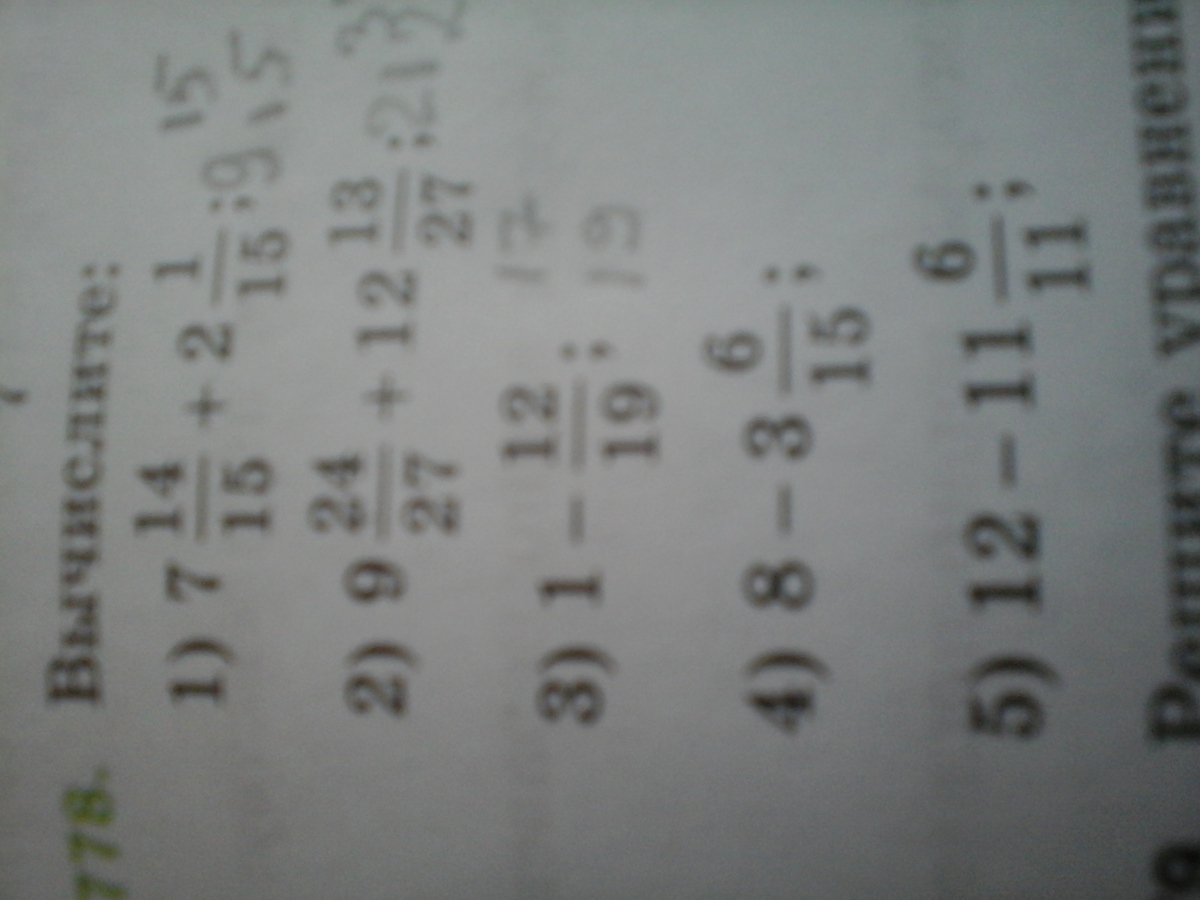 778. Вычислите:
1) 7 14/15 + 2 1/15; 9 15/15
2) 9 24/27 + 12 13/27; 21
3) 1 − 12/19; 17/19
4) 8 − 3 6/15;
5) 12 − 11 6/11;
9 Решите